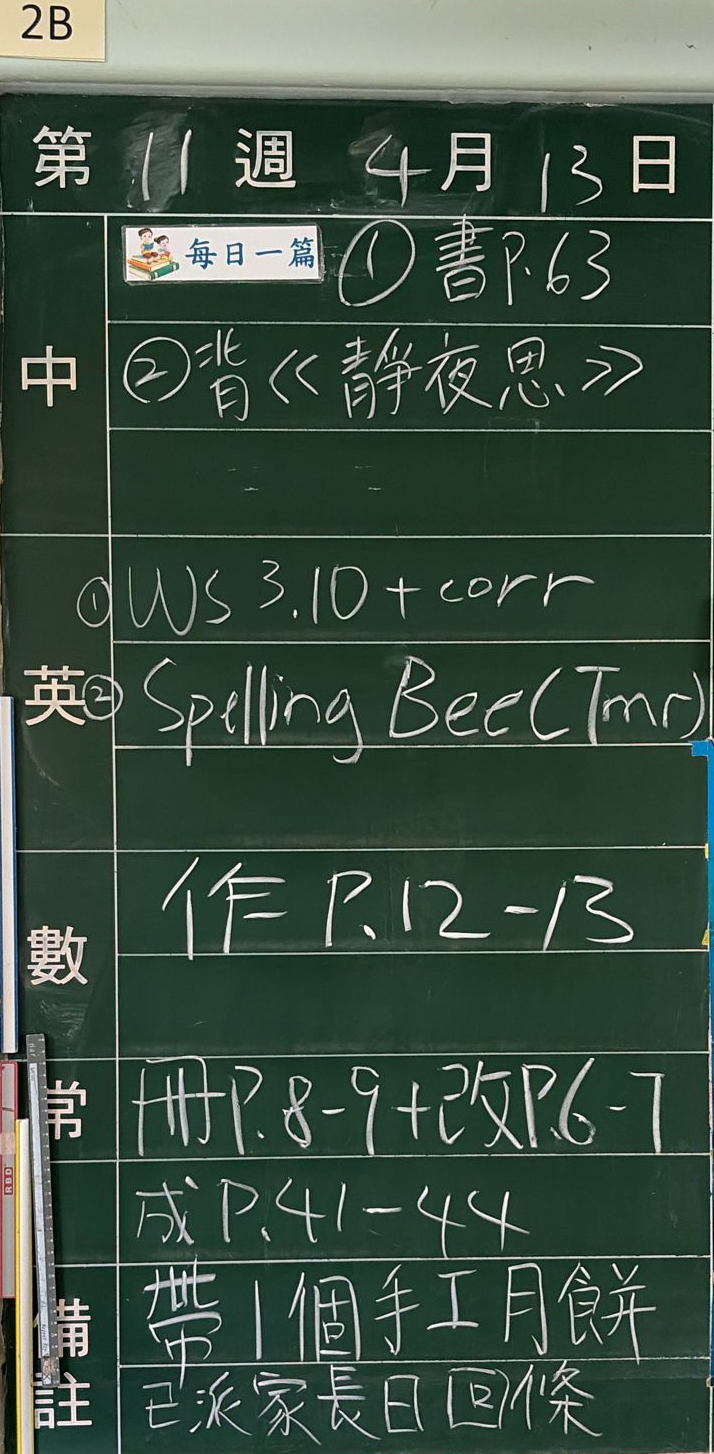 2B
第 11 週 4 月 13 日
每日一篇 ① 書P.63
中
② 背《靜夜思》
① WS 3.10 + corr
英
② Spelling Bee (Tmr)
數
作 P.12-13
常
冊P.8-9+改P.6-7
成 P.41-44
備註
帶1個手工月餅
已派家長日回條
RBD